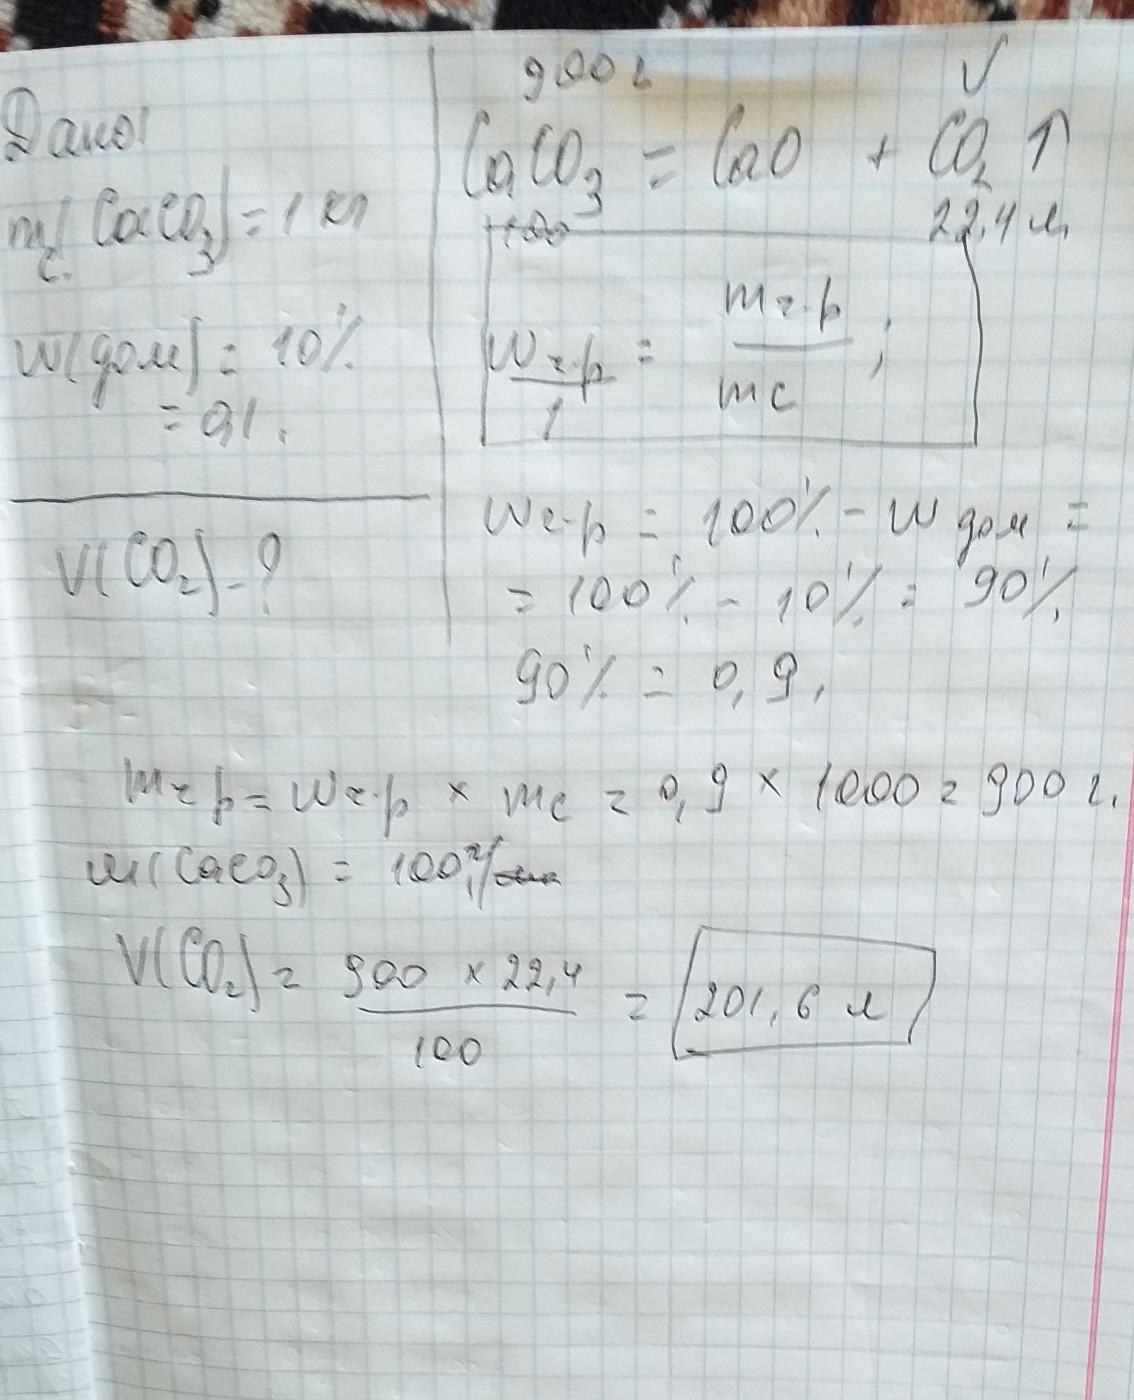 Дано:
mс.(CaCO₃) = 1 кг
W(дом) = 10%
= 0,1.
V(CO₂) - ?
900 г V
CaCO₃ = CaO + CO₂ ↑
100 22,4 л.
Wг.р / 1 = mг.р / mс ;
Wг.р = 100% - Wдом =
= 100% - 10% = 90%
90% = 0,9.
mг.р = Wг.р × mс = 0,9 × 1000 = 900 г.
m(CaCO₃) = 100 г/
V(CO₂) = 900 × 22,4 / 100 = 201,6 л